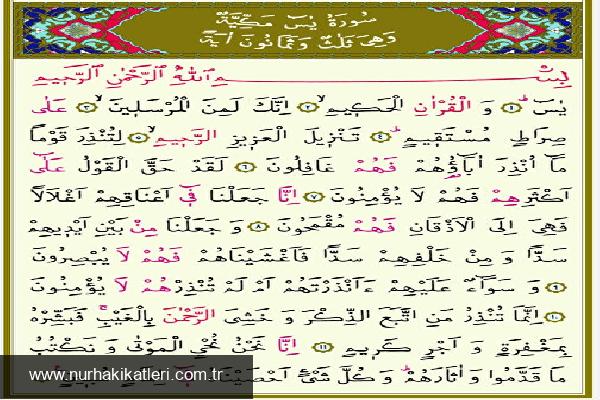 سُورَةُ يٰسٓ مَكِّيَّةٌ
وَهِيَ ثَلٰثٌ وَثَمَانُونَ اٰيَةً
بِسْمِ اللّٰهِ الرَّحْمٰنِ الرَّحِيمِ
يٰسٓ ﴿١﴾ وَ الْقُرْاٰنِ الْحَكِيمِ ﴿٢﴾ اِنَّكَ لَمِنَ الْمُرْسَلِينَ ﴿٣﴾ عَلٰى
صِرَاطٍ مُسْتَقِيمٍ ﴿٤﴾ تَنْزِيلَ الْعَزِيزِ الرَّحِيمِ ﴿٥﴾ لِتُنْذِرَ قَوْمًا
مَٓا اُنْذِرَ اٰبَٓاؤُهُمْ فَهُمْ غَافِلُونَ ﴿٦﴾ لَقَدْ حَقَّ الْقَوْلُ عَلٰٓى
اَكْثَرِهِمْ فَهُمْ لَا يُؤْمِنُونَ ﴿٧﴾ اِنَّا جَعَلْنَا فِٓي اَعْنَاقِهِمْ اَغْلَالًا
فَهِيَ اِلَى الْاَذْقَانِ فَهُمْ مُقْمَحُونَ ﴿٨﴾ وَ جَعَلْنَا مِنْ بَيْنِ اَيْدِيهِمْ
سَدًّا وَ مِنْ خَلْفِهِمْ سَدًّا فَاَغْشَيْنَاهُمْ فَهُمْ لَا يُبْصِرُونَ
﴿٩﴾ وَ سَوَٓاءٌ عَلَيْهِمْ ءَاَنْذَرْتَهُمْ اَمْ لَمْ تُنْذِرْهُمْ لَا يُؤْمِنُونَ
﴿١٠﴾ اِنَّمَا تُنْذِرُ مَنِ اتَّبَعَ الذِّكْرَ وَ خَشِيَ الرَّحْمٰنَ بِالْغَيْبِ فَبَشِّرْهُ
بِمَغْفِرَةٍ وَ اَجْرٍ كَرِيمٍ ﴿١١﴾ اِنَّا نَحْنُ نُحْيِ الْمَوْتٰى وَ نَكْتُبُ
مَا قَدَّمُوا وَ اٰثَارَهُمْ وَ كُلَّ شَيْءٍ اَحْصَيْنَاهُ
www.nurhakikatleri.com.tr